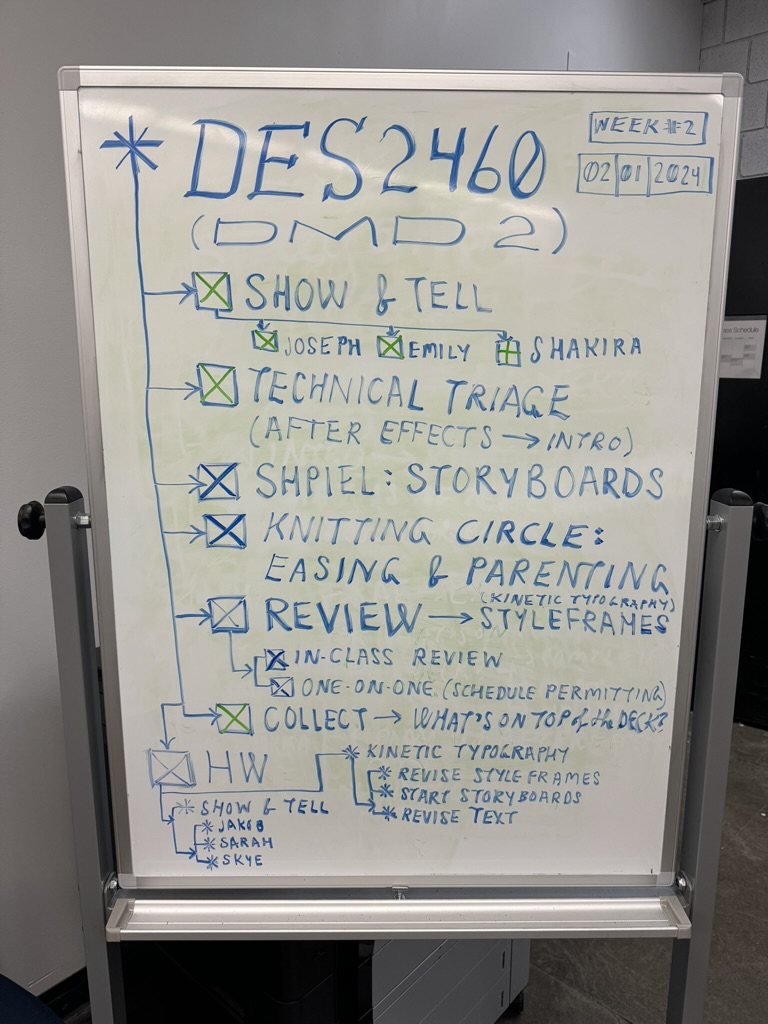 DES2460
WEEK #2
02 01 2024
(DMD 2)
SHOW & TELL
JOSEPH EMILY SHAKIRA
TECHNICAL TRIAGE
(AFTER EFFECTS → INTRO)
SHPIEL: STORYBOARDS
KNITTING CIRCLE:
EASING & PARENTING
(KINETIC TYPOGRAPHY)
REVIEW → STYLEFRAMES
IN-CLASS REVIEW
ONE-ON-ONE (SCHEDULE PERMITTING)
COLLECT → WHAT'S ON TOP of the DECK?
HW
SHOW & TELL
JAKOB
SARAH
SKYE
KINETIC TYPOGRAPHY
REVISE STYLEFRAMES
START STORYBOARDS
REVISE TEXT
Schedule